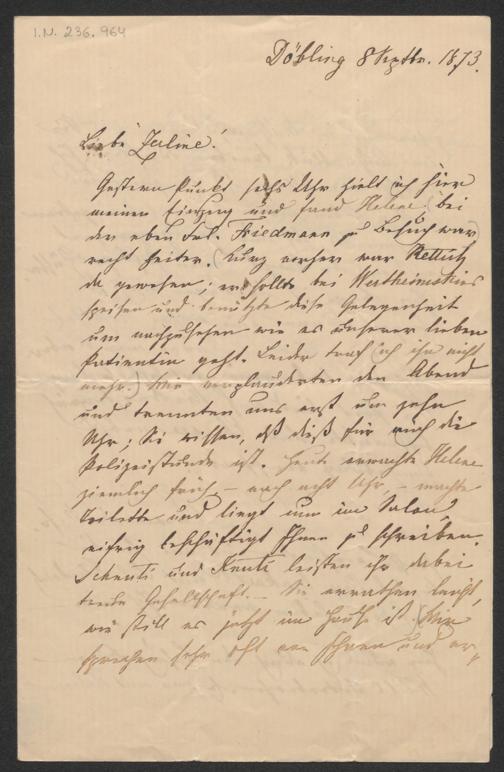 I.N. 236.964
Döbling 8 Septbr. 1873.
Liebe Zerline!
Gestern Punkt sechs Uhr hielt ich hier
meinen Einzug und fand Helene (bei
der eben Frl. Friedmann zu Besuch war)
recht heiter. (Kurz vorher war Rettich
da gewesen; er sollte bei Wertheimsteins
speisen und benützte diese Gelegenheit
um nachzusehen wie es unserer lieben
Patientin geht. Leider traf ich ihn nicht
mehr.) Wir verplauderten den Abend
und trennten uns erst um zehn
Uhr; Sie wissen, daß dieß für mich die
Polizeistunde ist. Heute erwachte Helene
ziemlich früh – nach acht Uhr, – machte
Toilette und liegt nun im Salon,
eifrig beschäftigt Ihnen zu schreiben.
und leisten ihr dabei
treue Gesellschaft. – Sie errathen leicht,
wie still es jetzt im Hause ist. Wir
sprechen sehr oft von Ihnen und er-